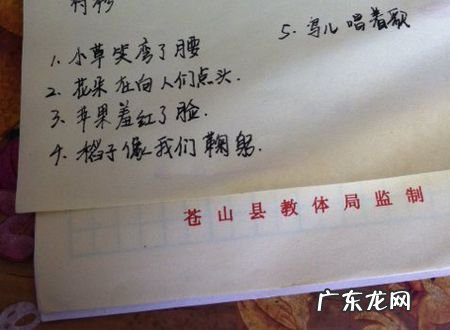 5. 鸟儿唱着歌
1. 小草笑弯了腰
2. 花朵在向人们点头.
3. 苹果羞红了脸.
4. 稻子像我们鞠躬.
苍山县教体局监制
广东龙网